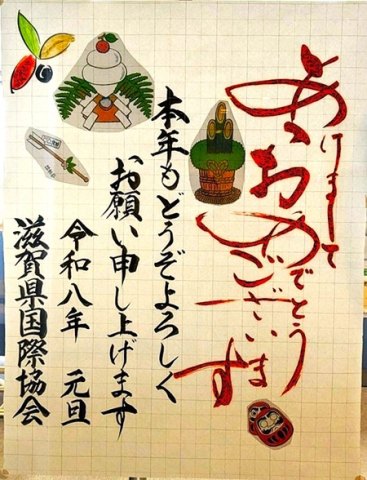 あけまして
おめでとう
ございます
本年もどうぞよろしく
お願い申し上げます
令和八年 元旦
滋賀県国際協会